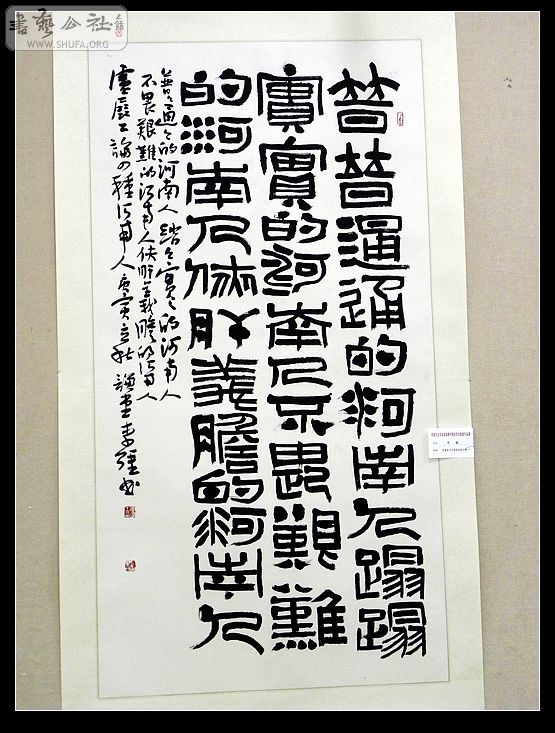 書藝公社
WWW.SHUFA.ORG
普普通通的河南人蹋蹋
實實的河南人不畏艱難
的河南人俠肝義膽的河南人
普〻通〻的河南人踏〻實〻的河南人
不畏艱難的河南人俠肝義膽的河南人
盧展工論四種河南人庚寅立秋